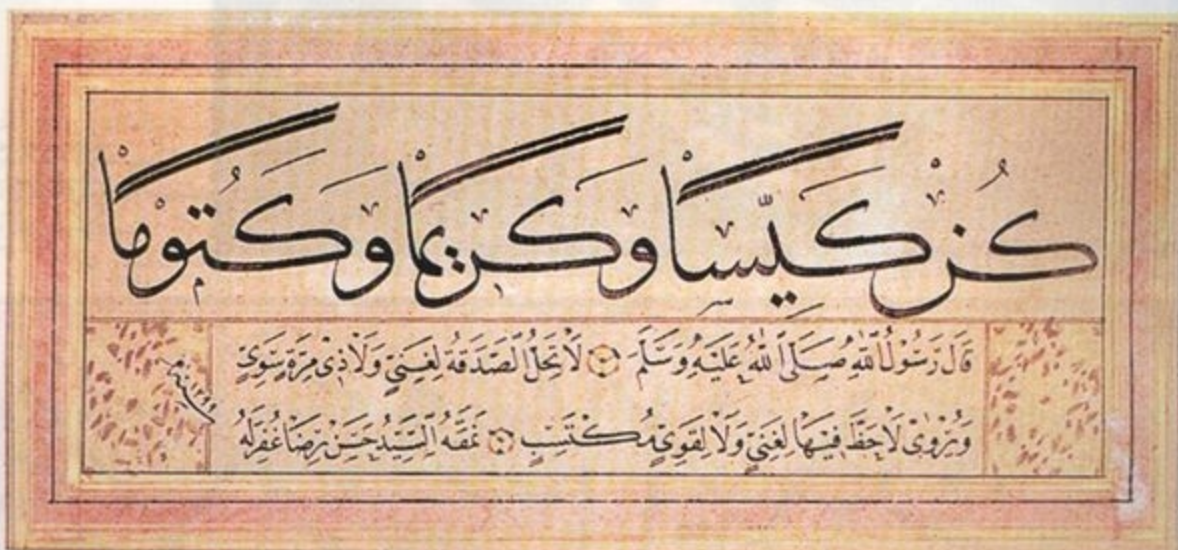 كُنْ كَيِّسًا وَكَرِيمًا وَكَتُومًا
قَالَ رَسُولُ اللّٰهِ صَلَّى اللّٰهُ عَلَيْهِ وَسَلَّمَ لَا تَحِلُّ الصَّدَقَةُ لِغَنِيٍّ وَلَا ذِى مِرَّةٍ سَوِىٍّ
وَيُرْوٰى لَا حَظَّ فِيهَا لِغَنِيٍّ وَلَا لِقَوِىٍّ مُكْتَسِبٍ نَمَقَهُ السَّيِّدُ حَسَنْ رِضَا غُفِرَ لَهُ